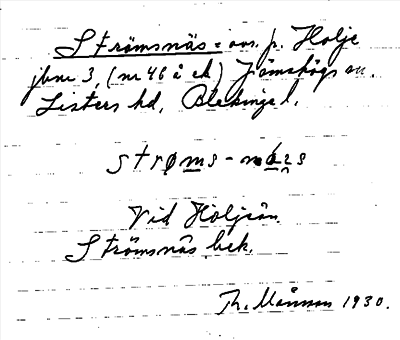 Strömsnäs = avs. p. Holje
jbnr 3, (nr 46 å ek) Jämshögs sn.
Listers hd, Blekinge l.
strøms-
Vid Holjeån.
Strömsnäs, bek.
Th. Månsson 1930.